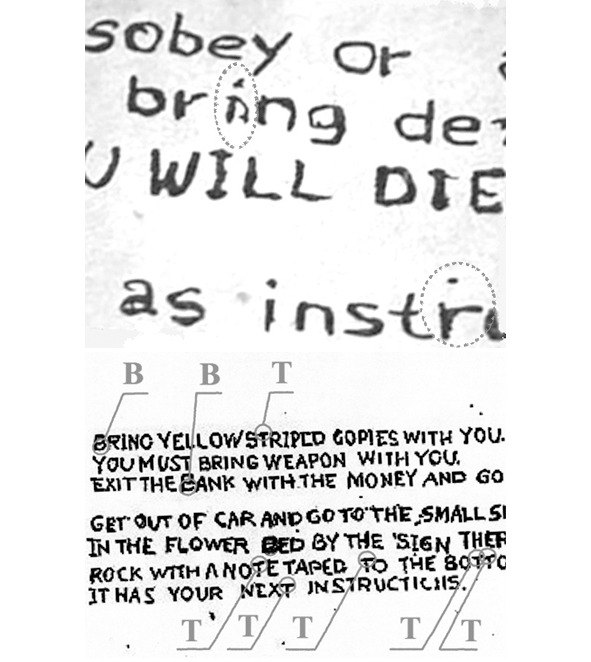 sobey or
bring de
U WILL DIE
as instru
B B T
BRING YELLOW STRIPED COPIES WITH YOU.
YOU MUST BRING WEAPON WITH YOU.
EXIT THE BANK WITH THE MONEY AND GO
GET OUT OF CAR AND GO TO THE SMALL SI
IN THE FLOWER BED BY THE 'SIGN THER
ROCK WITH A NOTE TAPED TO THE BOTTO
IT HAS YOUR NEXT INSTRUCTIONS.
T T T T T